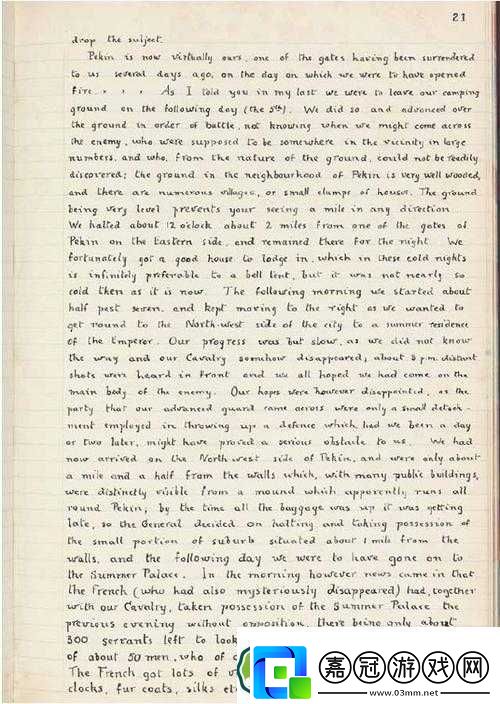 21
drop the subject.
Pekin is now virtually ours, one of the gates having been surrendered
to us several days ago, on the day on which we were to have opened
fire. . . . As I told you in my last we were to leave our camping
ground on the following day (the 5th). We did so and advanced over
the ground in order of battle, not knowing when we might come across
the enemy, who were supposed to be somewhere in the vicinity in large
numbers, and who, from the nature of the ground, could not be readily
discovered; the ground in the neighbourhood of Pekin is very well wooded,
and there are numerous villages, or small clumps of houses. The ground
being very level prevents your seeing a mile in any direction.
We halted about 12 o'clock about 2 miles from one of the gates of
Pekin on the Eastern side, and remained there for the night. We
fortunately got a good house to lodge in, which in these cold nights
is infinitely preferable to a bell tent, but it was not nearly so
cold then as it is now. The following morning we started about
half past seven, and kept moving to the right as we wanted to
get round to the North-West side of the city to a summer residence
of the Emperor. Our progress was but slow, as we did not know
the way and our Cavalry somehow disappeared, about 3 p.m. distant
shots were heard in front and we all hoped we had come on the
main body of the enemy. Our hopes were however disappointed, as the
party that our advanced guard came across were only a small detach-
ment employed in throwing up a defence which had we been a day
or two later, might have proved a serious obstacle to us. We had
now arrived on the North-west side of Pekin, and were only about
a mile and a half from the walls which, with many public buildings,
were distinctly visible from a mound which apparently runs all
round Pekin; by the time all the baggage was up it was getting
late, so the General decided on halting and taking possession of
the small portion of suburb situated about 1 mile from the
walls, and the following day we were to have gone on to
the Summer Palace. In the morning however news came in that
the French (who had also mysteriously disappeared) had, together
with our Cavalry, taken possession of the Summer Palace the
previous evening without opposition, there being only about
300 servants left to look
of about 50 men, who of
The French got lots of
clocks, fur coats, silks etc
嘉冠游戏网
www.03mm.net